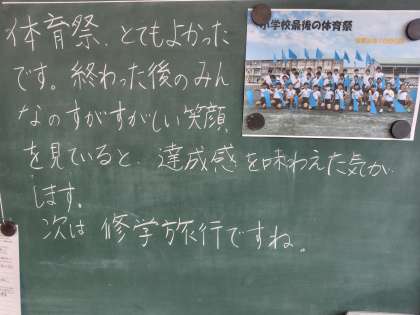 体育祭、とてもよかった
です。終わった後のみん
なのすがすがしい笑顔
を見ていると、達成感を味わえた気が
します。
次は修学旅行ですね。
小学校最後の体育祭